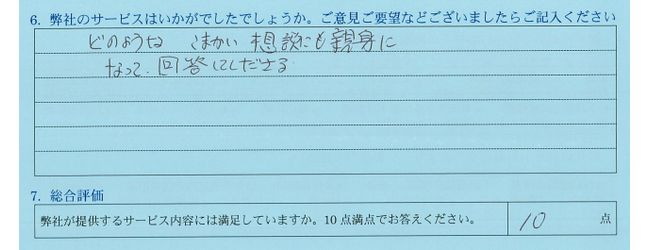 6. 弊社のサービスはいかがでしたでしょうか。ご意見ご要望などございましたらご記入ください
どのような こまかい 想談にも親身に
なって、回答してくださる
7. 総合評価
弊社が提供するサービス内容には満足していますか。10点満点でお答えください。 10 点